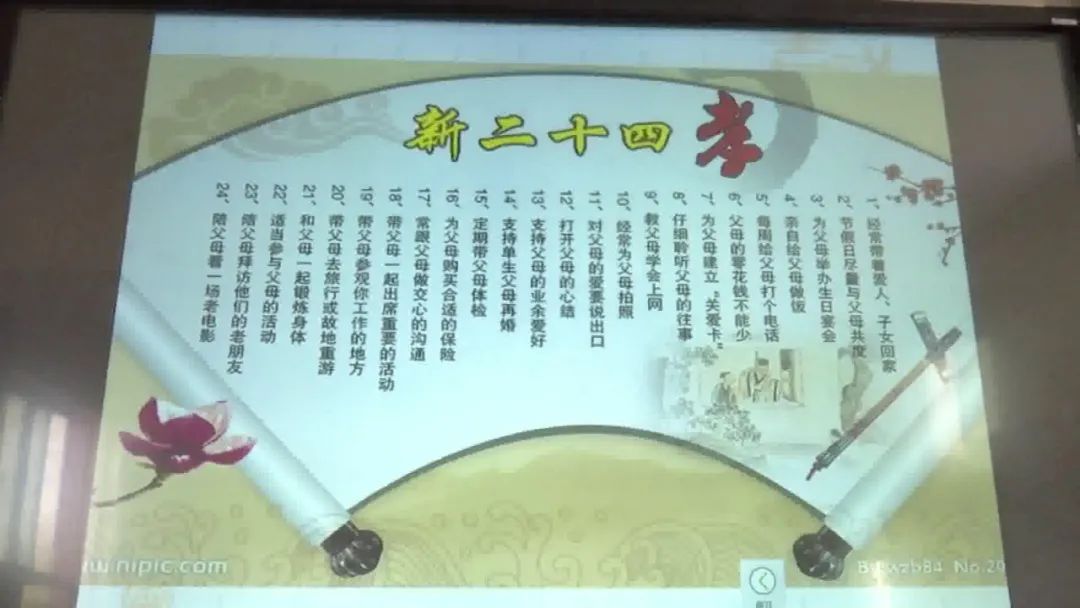 新二十四孝
1、经常带着爱人、子女回家
2、节假日尽量与父母共度
3、为父母举办生日宴会
4、亲自给父母做饭
5、每周给父母打个电话
6、父母的零花钱不能少
7、为父母建立“关爱卡”
8、仔细聆听父母的往事
9、教父母学会上网
10、经常为父母拍照
11、对父母的爱要说出口
12、打开父母的心结
13、支持父母的业余爱好
14、支持单身父母再婚
15、定期带父母体检
16、为父母购买合适的保险
17、常跟父母做交心的沟通
18、带父母一起出席重要的活动
19、带父母参观你工作的地方
20、带父母去旅行或故地重游
21、和父母一起锻炼身体
22、适当参与父母的活动
23、陪父母拜访他们的老朋友
24、陪父母看一场老电影
nipic.com
By:wzb84 No.20